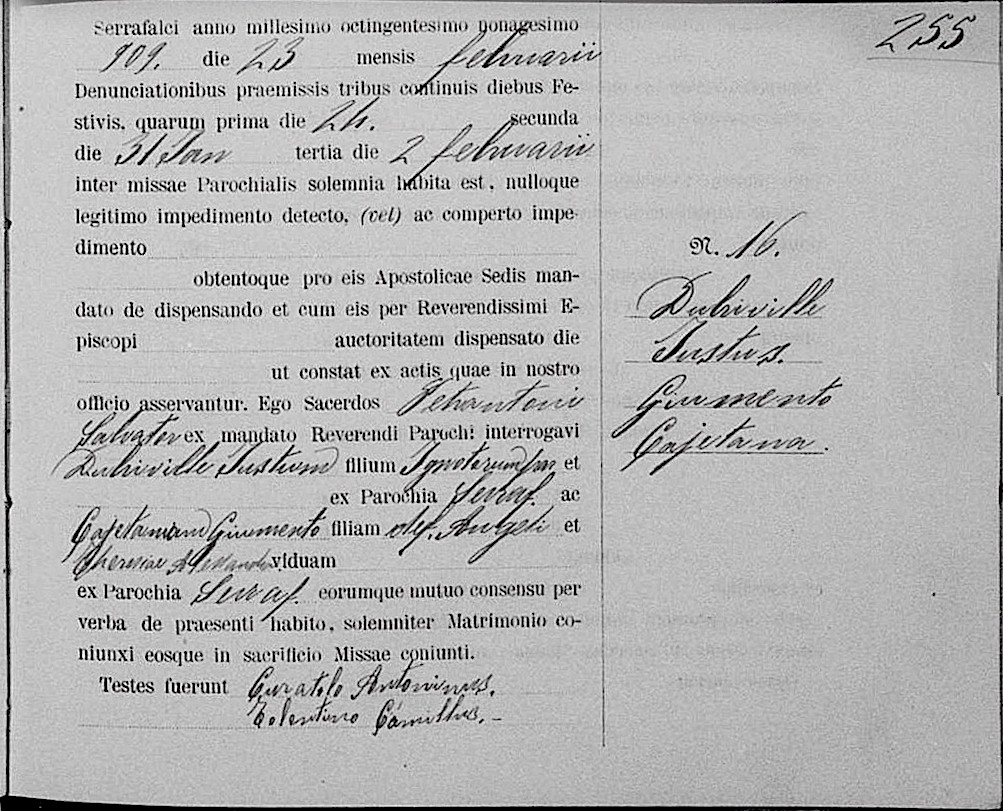 255
Serrafalci anno millesimo octingentesimo nonagesimo
909. die 23 mensis februarii
Denunciationibus praemissis tribus continuis diebus Fe-
stivis, quarum prima die 24. secunda
die 31 Jan tertia die 2 februarii
inter missae Parochialis solemnia habita est, nulloque
legitimo impedimento detecto, (vel) ac comperto impe-
dimento
obtentoque pro eis Apostolicae Sedis man-
dato de dispensando et cum eis per Reverendissimi E-
piscopi auctoritatem dispensato die
ut constat ex actis quae in nostro
officio asservantur. Ego Sacerdos Petrantoni
Salvator ex mandato Reverendi Parochi interrogavi
Dubriville Justum filium Ignotorum et
ex Parochia Serraf. ac
Cajetanam Giumento filiam Angeli et
Theresiae viduam
ex Parochia Serraf. eorumque mutuo consensu per
verba de praesenti habito, solemniter Matrimonio co-
niunxi eosque in sacrificio Missae coniunti.
Testes fuerunt Curatolo Antoninus.
Tolentino Camillus.
N. 16.
Dubriville
Justus.
Giumento
Cajetana.